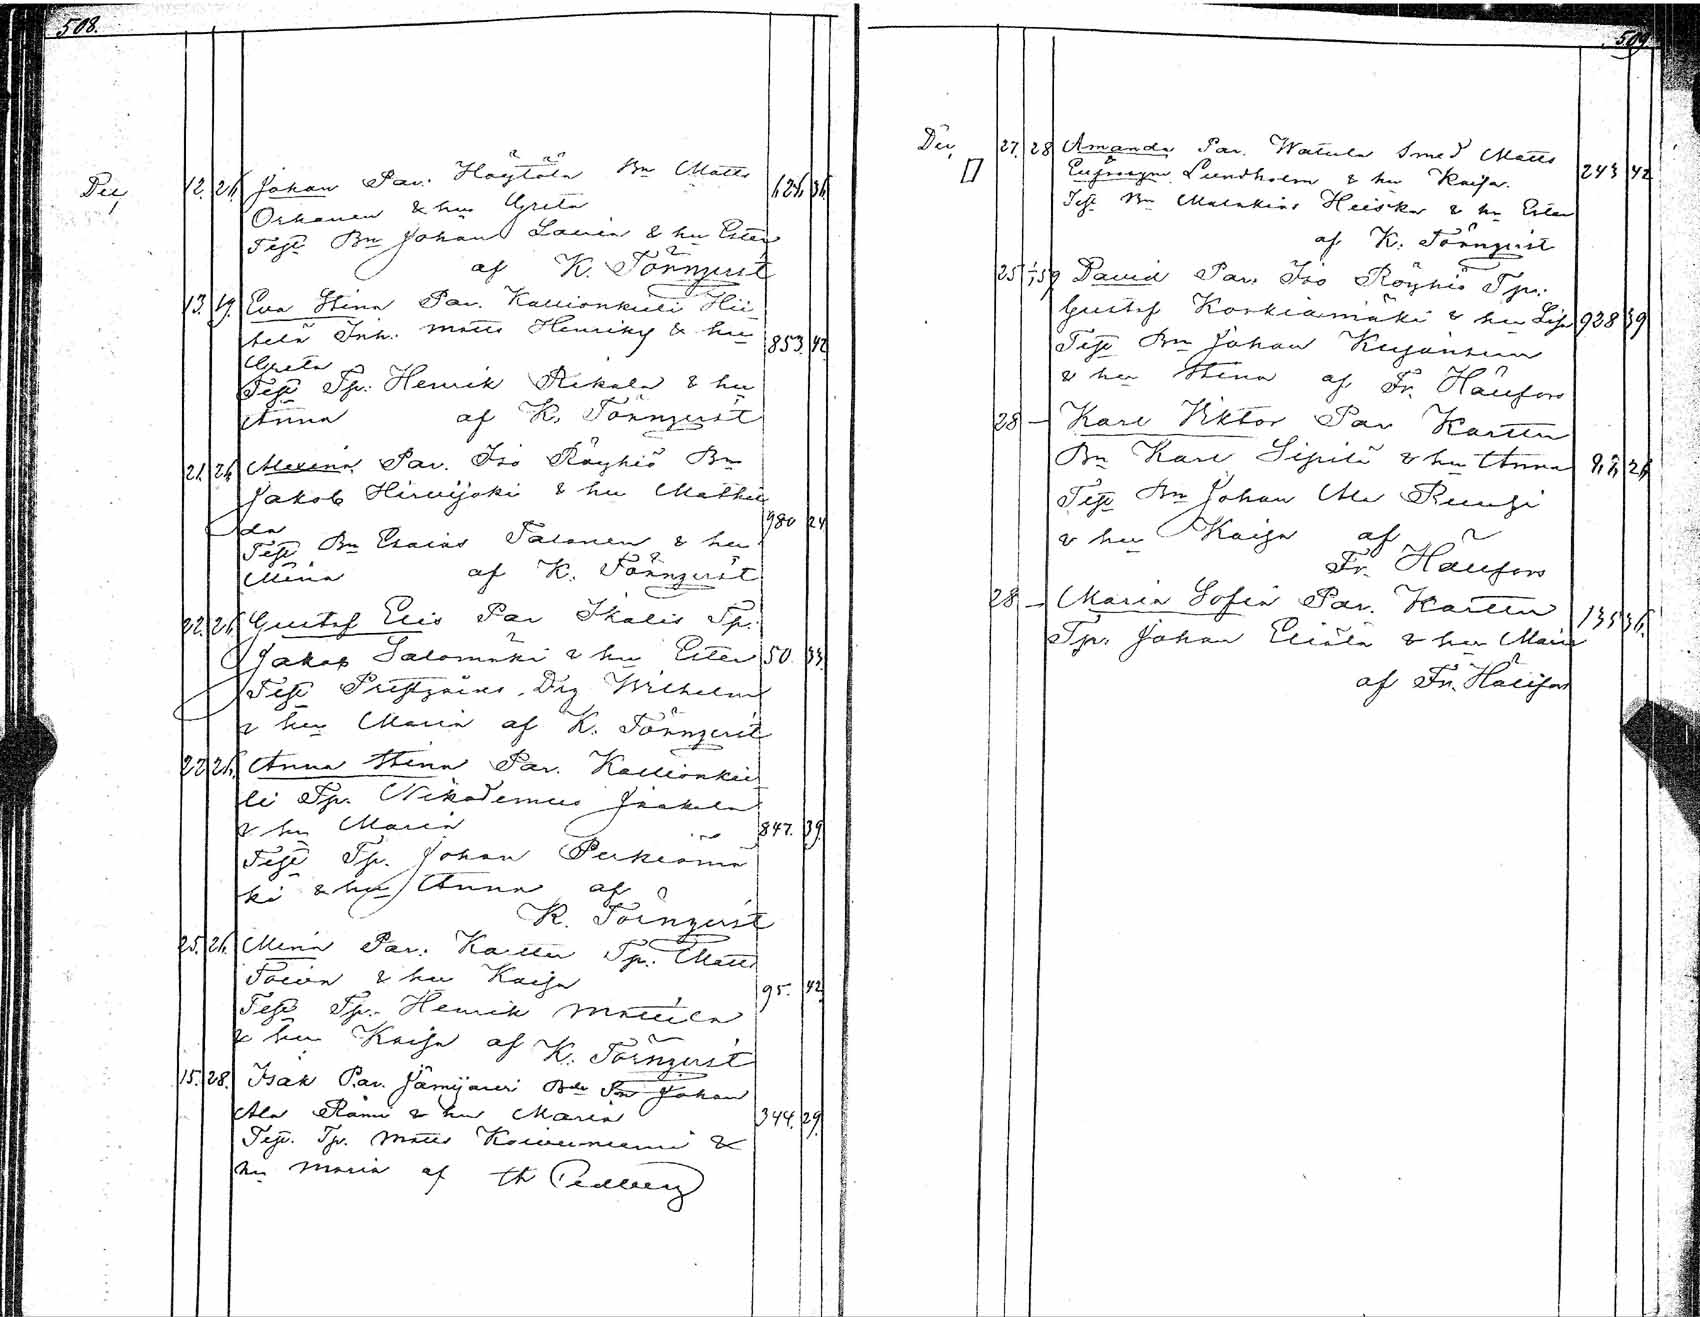 508.
Dec
12. 26. Johan Par. Höytölä Bn Matts 626. 36.
Oskanen & hu Greta
Test Bn Johan Lauin & hu Ester
af K. Törnqvist
13. 19. Eva Stina Par. Kallionkieli Hii-
telä Inh. Matts Henriks & hu 853. 42.
Greta
Test Tp. Henrik Rekola & hu
Anna af K. Törnqvist
21. 26. Alexina Par. Iso Röyhiö Bn
Jakob Hirvijoki & hu Mathil
da 980 24
Test Bn Esaias Talonen & hu
Mina af K. Törnqvist
22. 26. Gustaf Elis Par Ikalis Tp.
Jakob Salomäki & hu Ester 50. 33.
Test Drg Wilhelm
& hu Maria af K. Törnqvist
22. 26. Anna Stina Par. Kallionkie
li Tp. Nikodemus Jaakola
& hu Maria 847. 39.
Test Tp. Johan Perkiömä
ki & hu Anna af
K. Törnqvist
25. 26. Mina Par. Karttu Tp. Matts
Toivon & hu Kaisa 95. 42.
Test Tp. Henrik Mattila
& hu Kaisa af K. Törnqvist
15. 28. Isak Par. Jämijärvi Johan
Ala Rämi & hu Maria 344. 29.
Test. Tp. Matts Koivuniemi &
hu Maria af Th Pedberg
509
Dec,
27. 28 Amanda Par. Watula Smed Matts 243 42
Eufrosyn Lundholm & hu Kaisa.
Test Bn Malakias Heiska & hu Ester
af K. Törnqvist
25 1/1 59 David Par. Iso Röyhiö Tp.
Gustaf Korkiamäki & hu Lisa 928 39
Test Bn Johan Kujansuu
& hu Stina af Fr. Hällfors
28 – Karl Viktor Par Karttu
Bn Karl Sipilä & hu Anna 26
Test Bn Johan Ala Ruusi
& hu Kaisa af
Fr. Hällfors
28 – Maria Sofia Par. Karttu 135 36.
Tp. Johan Eliälä & hu Maria
af Fr. Hällfors